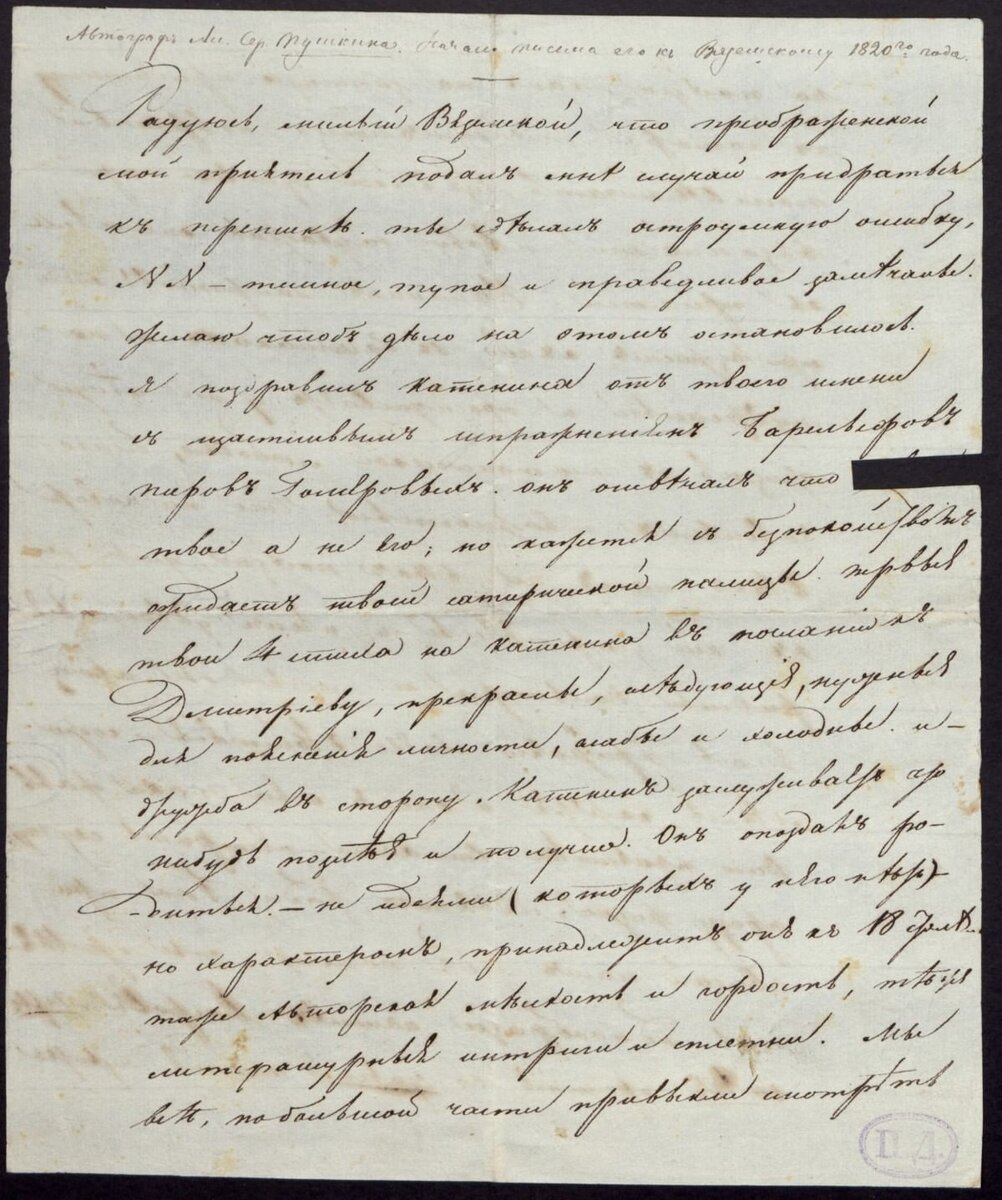 Автографъ Ал. Сер. Пушкина. Начало письма его къ Вяземскому 1820го года.
Радуюсь, милый Вяземской, что преображенской
мой приятель подалъ мнѣ случай придраться
къ перепискѣ. ты сдѣлалъ остроумную ошибку,
NN – темное, тупое и справедливое замѣчанье.
желаю чтобъ дѣло на этомъ остановилось.
я поздравилъ Катенина отъ твоего имени
съ щастливымъ Барельефовъ
пировъ Гомеровыхъ. онъ отвѣчалъ что
твое а не его; но кажется съ безпокойствомъ
ожидаетъ твоей сатирической палицы. первыя
твои 4 стиха на Катенина въ посланіи къ
Дмитріеву, прекрасны, слѣдующія, нужныя
для поясненія личности, слабы и холодны. и –
дружба въ сторону Катенинъ заслуживаетъ что
нибудь позлѣя и получше. Онъ опоздалъ ро–
диться – не идеями (которыхъ у него нѣтъ) –
но характеромъ, принадлежитъ онъ къ 18 столѣт.
таже Авторская мѣлкость и гордость, тѣже
литературныя интриги и сплетни. Мы
всѣ, по большой части привыкли смотрѣть
П.Д.